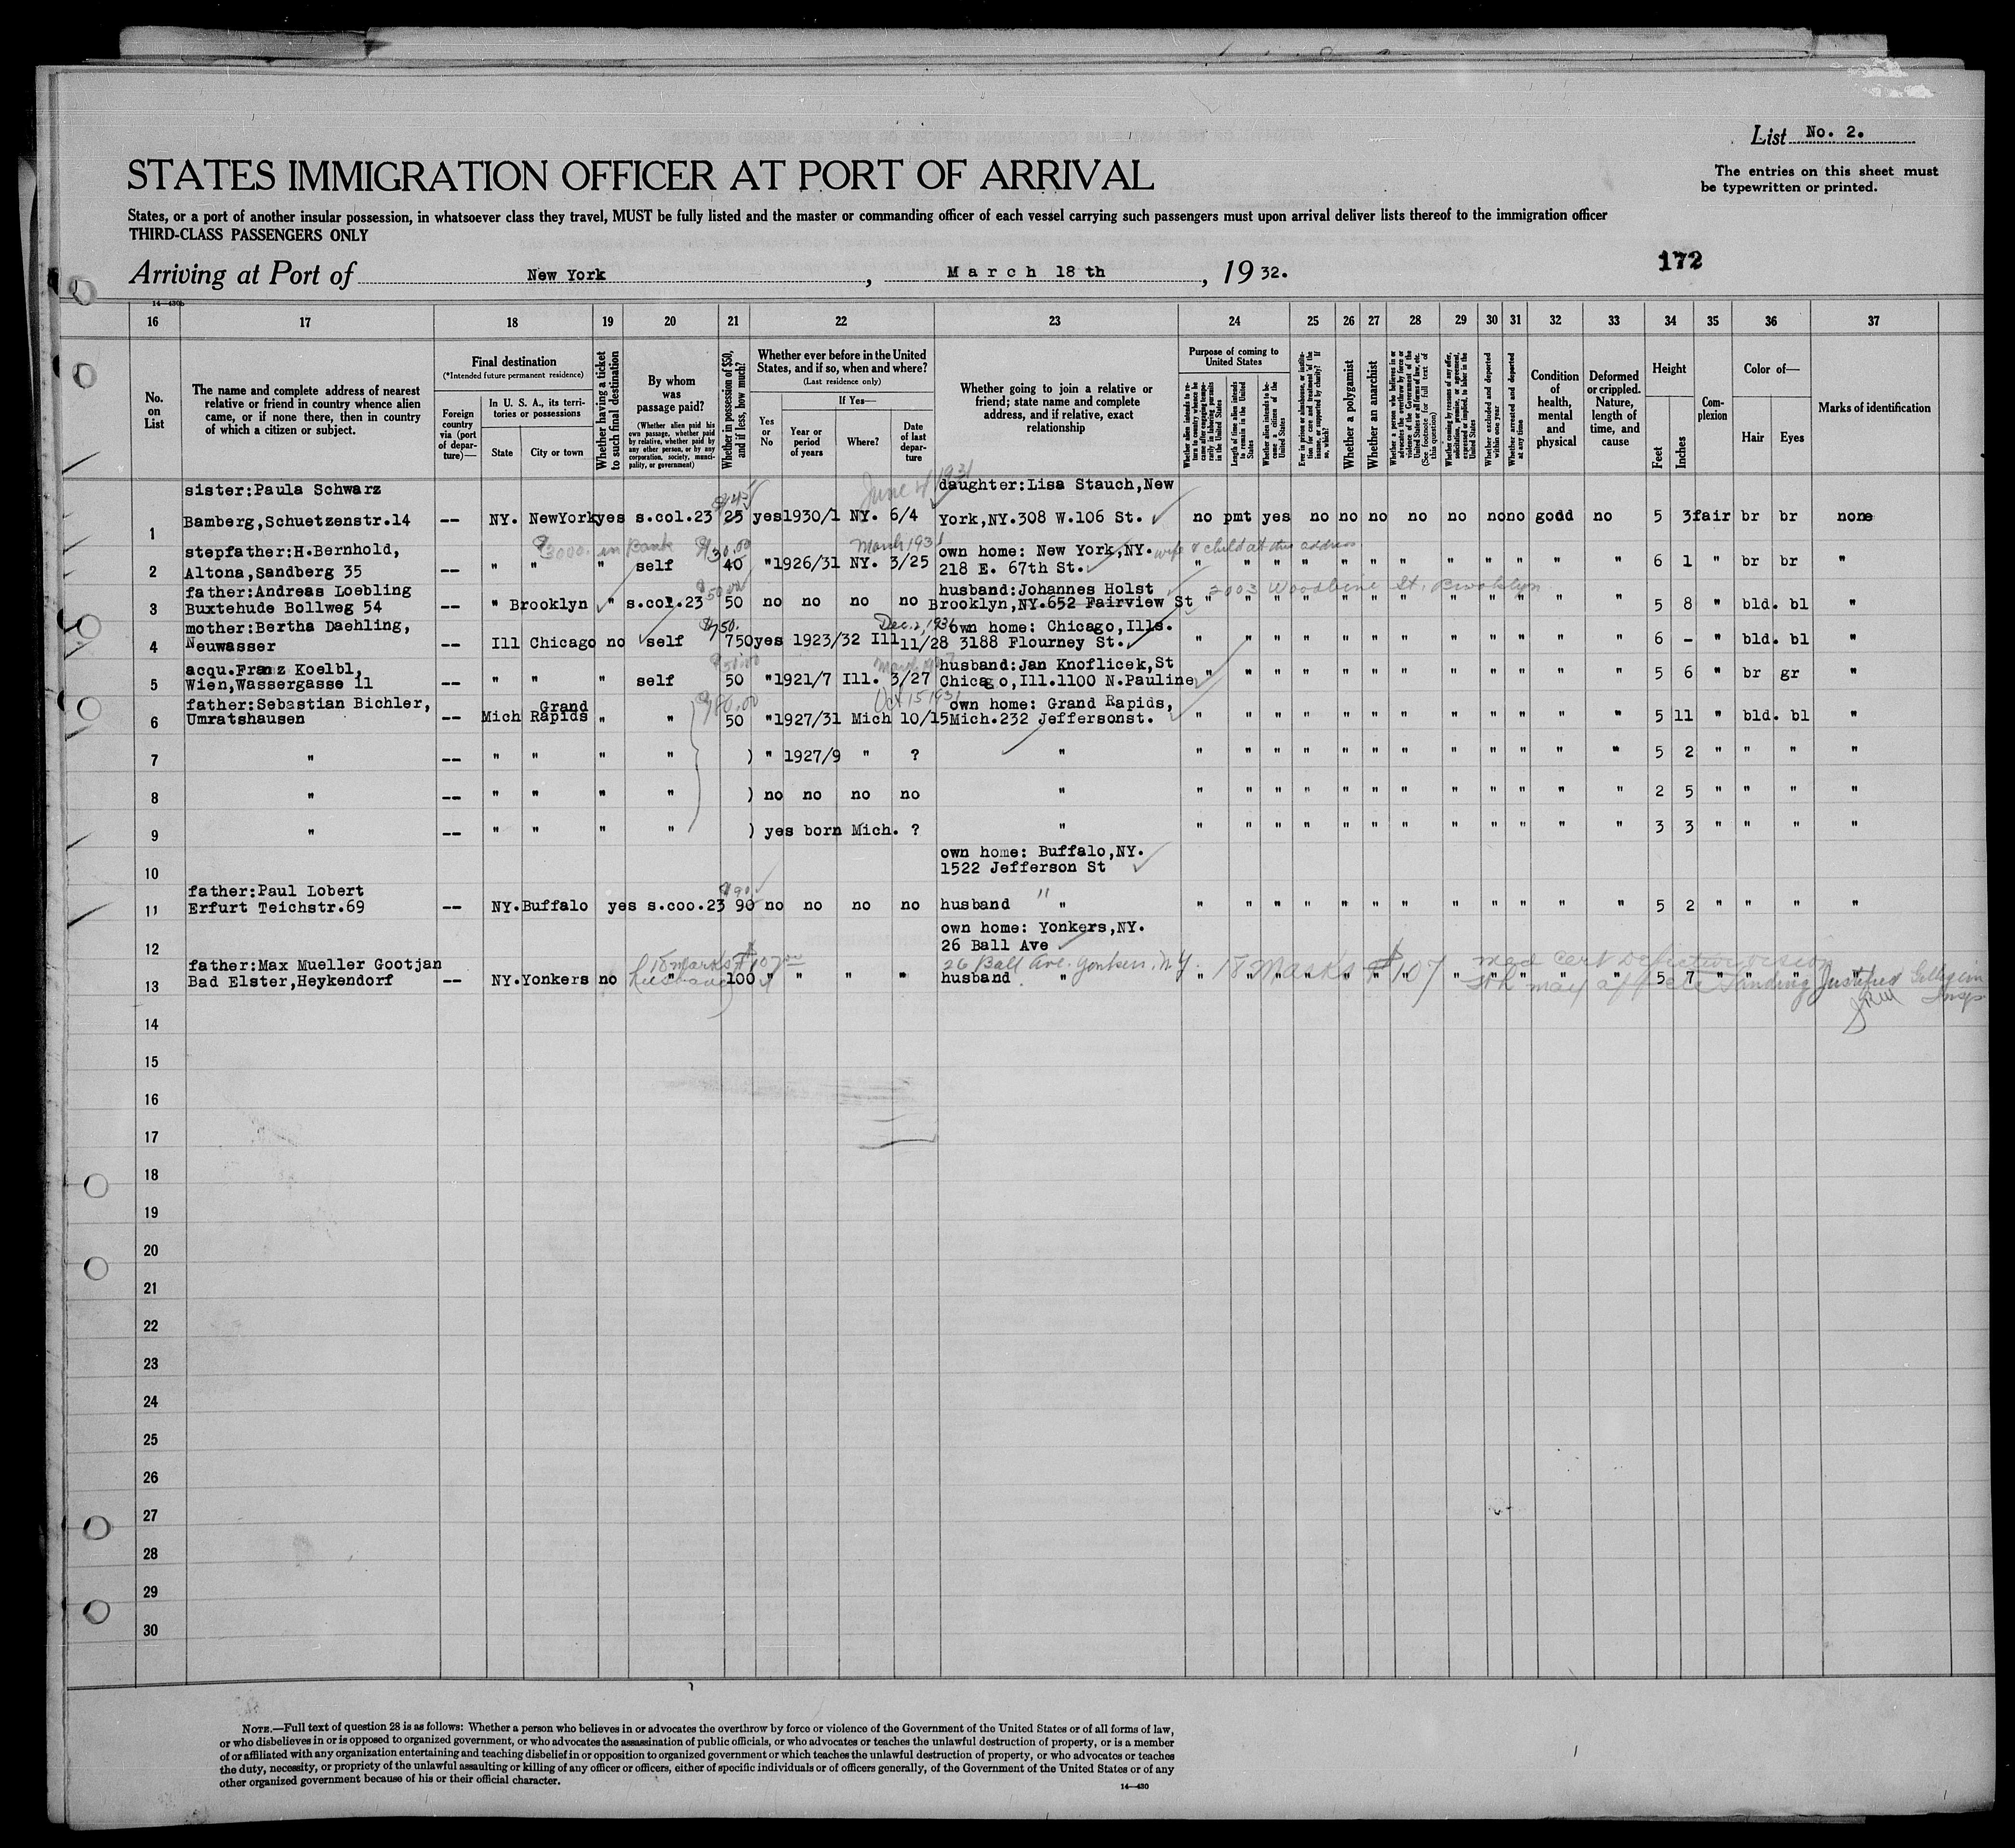 List No. 2.
STATES IMMIGRATION OFFICER AT PORT OF ARRIVAL
The entries on this sheet must
be typewritten or printed.
States, or a port of another insular possession, in whatsoever class they travel, MUST be fully listed and the master or commanding officer of each vessel carrying such passengers must upon arrival deliver lists thereof to the immigration officer
THIRD-CLASS PASSENGERS ONLY
Arriving at Port of New York, March 18 th, 19 32.
172
14—430b
16 17 18 19 20 21 22 23 24 25 26 27 28 29 30 31 32 33 34 35 36 37
No. on List
The name and complete address of nearest relative or friend in country whence alien came, or if none there, then in country of which a citizen or subject.
Final destination
(*Intended future permanent residence)
Foreign country via (port of departure)—
In U. S. A., its territories or possessions
State
City or town
Whether having a ticket to such final destination
By whom was passage paid?
(Whether alien paid his own passage, whether paid by relative, whether paid by any other person, or by any corporation, society, municipality, or government)
Whether in possession of $50, and if less, how much?
Whether ever before in the United States, and if so, when and where?
(Last residence only)
Yes or No
If Yes—
Year or period of years
Where?
Date of last departure
Whether going to join a relative or friend; state name and complete address, and if relative, exact relationship
Purpose of coming to United States
Whether alien intends to return to country whence he came after engaging temporarily in laboring pursuits in the United States
Length of time alien intends to remain in the United States
Whether alien intends to become a citizen of the United States
Ever in prison or almshouse, or institution for care and treatment of the insane, or supported by charity? If so, which?
Whether a polygamist
Whether an anarchist
Whether coming by reasons of any offer, solicitation, promise, or agreement, expressed or implied, to labor in the United States
Whether excluded and deported within one year
Whether arrested and deported at any time
Condition of health, mental and physical
Deformed or crippled. Nature, length of time, and cause
Height
Feet
Inches
Complexion
Color of—
Hair
Eyes
Marks of identification
June 4 1931
sister:Paula Schwarz daughter:Lisa Stauch,New
1 Bamberg,Schuetzenstr.14 -- NY. NewYork yes s.col.23 25 yes 1930/1 NY. 6/4 York,NY.308 W.106 St. no pmt yes no no no no no no no godd no 5 3 fair br br none
$3000. in Bank $130.00 March 1931
stepfather:H.Bernhold, own home: New York,NY. wife & child at this address
2 Altona,Sandberg 35 -- " " " self 40 " 1926/31 NY. 3/25 218 E. 67th St. " " " " " " " " " " " " 6 1 " br br "
father:Andreas Loebling husband:Johannes Holst 2003 Woodbine St. Brooklyn
3 Buxtehude Bollweg 54 -- " Brooklyn " s.col.23 50 no no no no Brooklyn,NY.652 Fairview St " " " " " " " " " " " " 5 8 " bld. bl "
$750. Dec. 2, 1931
mother:Bertha Daehling, own home: Chicago,Ills.
4 Neuwasser -- Ill Chicago no self 750 yes 1923/32 Ill 11/28 3188 Flourney St. " " " " " " " " " " " " 6 - " bld. bl "
acqu.Franz Koelbl, husband:Jan Knoflicek,St
5 Wien,Wassergasse 11 -- " " " self 50 " 1921/7 Ill. 3/27 Chicago,Ill.1100 N.Pauline " " " " " " " " " " " " 5 6 " br gr "
$180.00 Oct 15 1931
father:Sebastian Bichler, Grand own home: Grand Rapids,
6 Umratshausen -- Mich Rapids " " 50 " 1927/31 Mich 10/15 Mich.232 Jeffersonst. " " " " " " " " " " " " 5 11 " bld. bl "
7 " -- " " " " ) " 1927/9 " ? " " " " " " " " " " " " " 5 2 " " " "
8 " -- " " " " ) no no no no " " " " " " " " " " " " " 2 5 " " " "
9 " -- " " " " ) yes born Mich. ? " " " " " " " " " " " " " 3 3 " " " "
own home: Buffalo,NY.
10 1522 Jefferson St
father:Paul Lobert $90
11 Erfurt Teichstr.69 -- NY. Buffalo yes s.coo.23 90 no no no no husband " " " " " " " " " " " " " 5 2 " " " "
own home: Yonkers,NY.
12 26 Ball Ave
father:Max Mueller Gootjan 18 Marks $107 26 Ball Ave. Yonkers. N.Y. 18 Marks $107 Med cert Defective vision
13 Bad Elster,Heykendorf -- NY. Yonkers no (husband) 100 " " " " husband " " " " " " " " " " " " " 5 7 " " " " may affect Landing Justified
14
15
16
17
18
19
20
21
22
23
24
25
26
27
28
29
30
NOTE.—Full text of question 28 is as follows: Whether a person who believes in or advocates the overthrow by force or violence of the Government of the United States or of all forms of law,
or who disbelieves in or is opposed to organized government, or who advocates the assassination of public officials, or who advocates or teaches the unlawful destruction of property, or is a member
of or affiliated with any organization entertaining and teaching disbelief in or opposition to organized government or which teaches the unlawful destruction of property, or who advocates or teaches
the duty, necessity, or propriety of the unlawful assaulting or killing of any officer or officers, either of specific individuals or of officers generally, of the Government of the United States or of any
other organized government because of his or their official character.
14—430